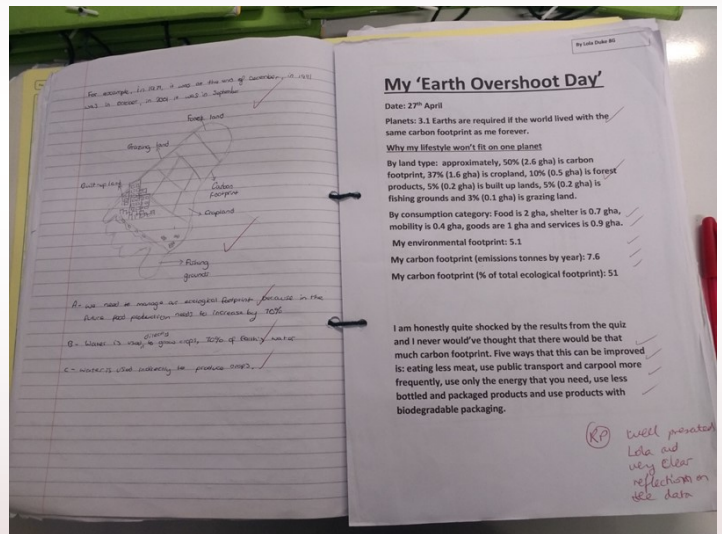 For example, in 1971 it was at the end of December, in 1991
was in October, in 2001 it was in September
Forest land
Grazing land
Built-up land
Carbon
Footprint
Cropland
Fishing
grounds
A- we need to manage our ecological footprint because in the
future food production needs to increase by 70%
B- Water is used to grow crops, 70% of
water
C- water is used to produce crops.
By Lola Duke 8G
My ‘Earth Overshoot Day’
Date: 27th April
Planets: 3.1 Earths are required if the world lived with the
same carbon footprint as me forever.
Why my lifestyle won’t fit on one planet
By land type: approximately, 50% (2.6 gha) is carbon
footprint, 37% (1.6 gha) is cropland, 10% (0.5 gha) is forest
products, 5% (0.2 gha) is built up lands, 5% (0.2 gha) is
fishing grounds and 3% (0.1 gha) is grazing land.
By consumption category: Food is 2 gha, shelter is 0.7 gha,
mobility is 0.4 gha, goods are 1 gha and services is 0.9 gha.
My environmental footprint: 5.1
My carbon footprint (emissions tonnes by year): 7.6
My carbon footprint (% of total ecological footprint): 51
I am honestly quite shocked by the results from the quiz
and I never would’ve thought that there would be that
much carbon footprint. Five ways that this can be improved
is: eating less meat, use public transport and carpool more
frequently, use only the energy that you need, use less
bottled and packaged products and use products with
biodegradable packaging.
RP Well presented
Lola and
very clear
reflections on
the data